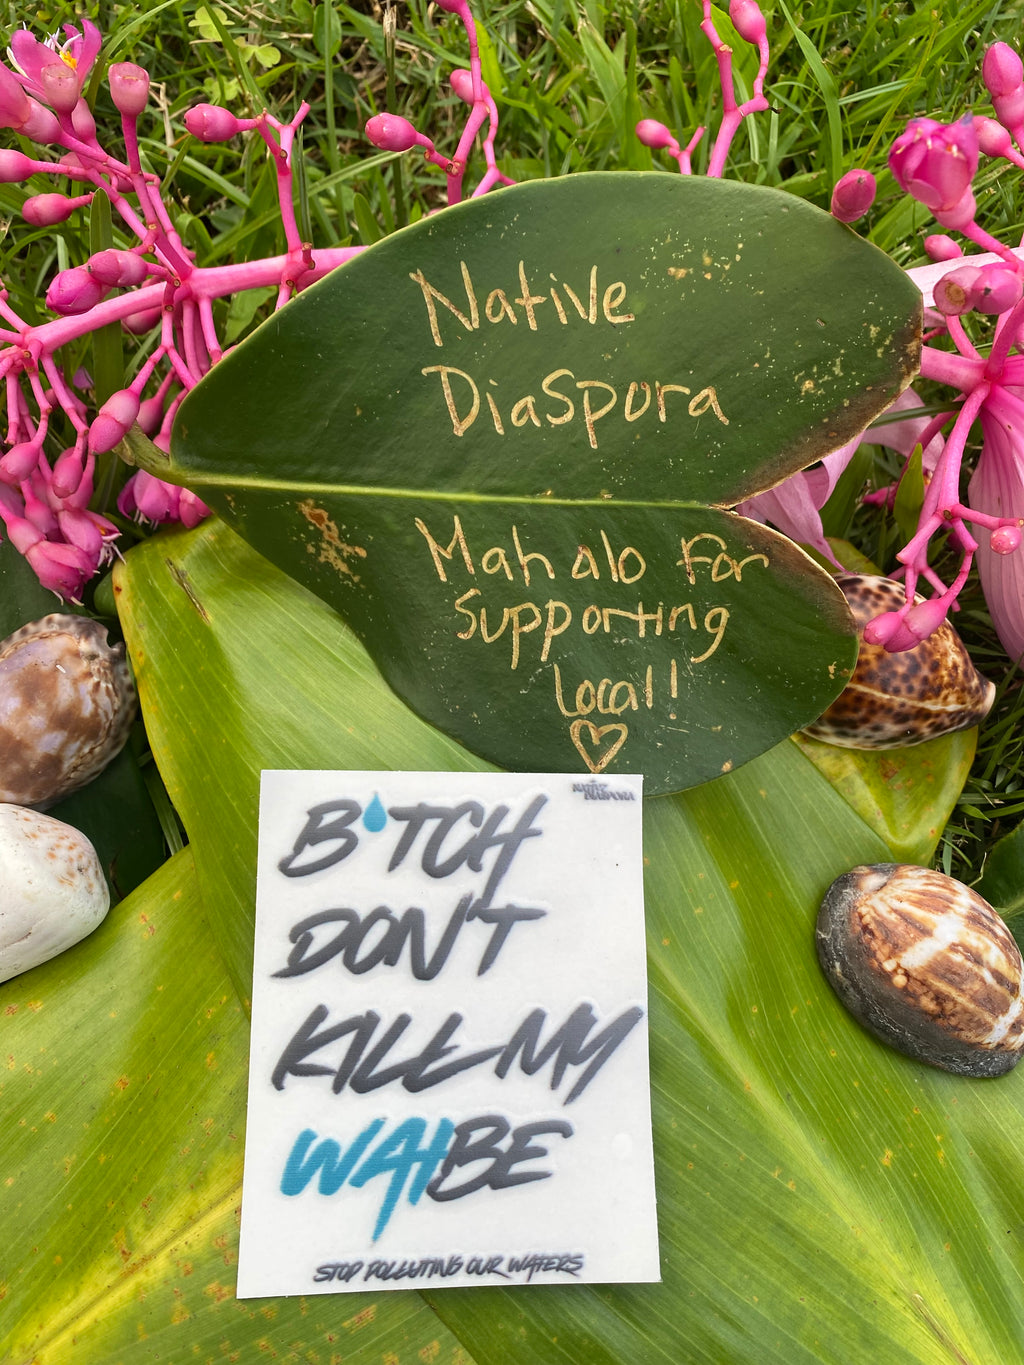 Native
Diaspora
Mahalo For
Supporting
Local!
NATIVE
DIASPORA
B TCH
DON'T
KILL MY
WAIBE
STOP POLLUTING OUR WATERS